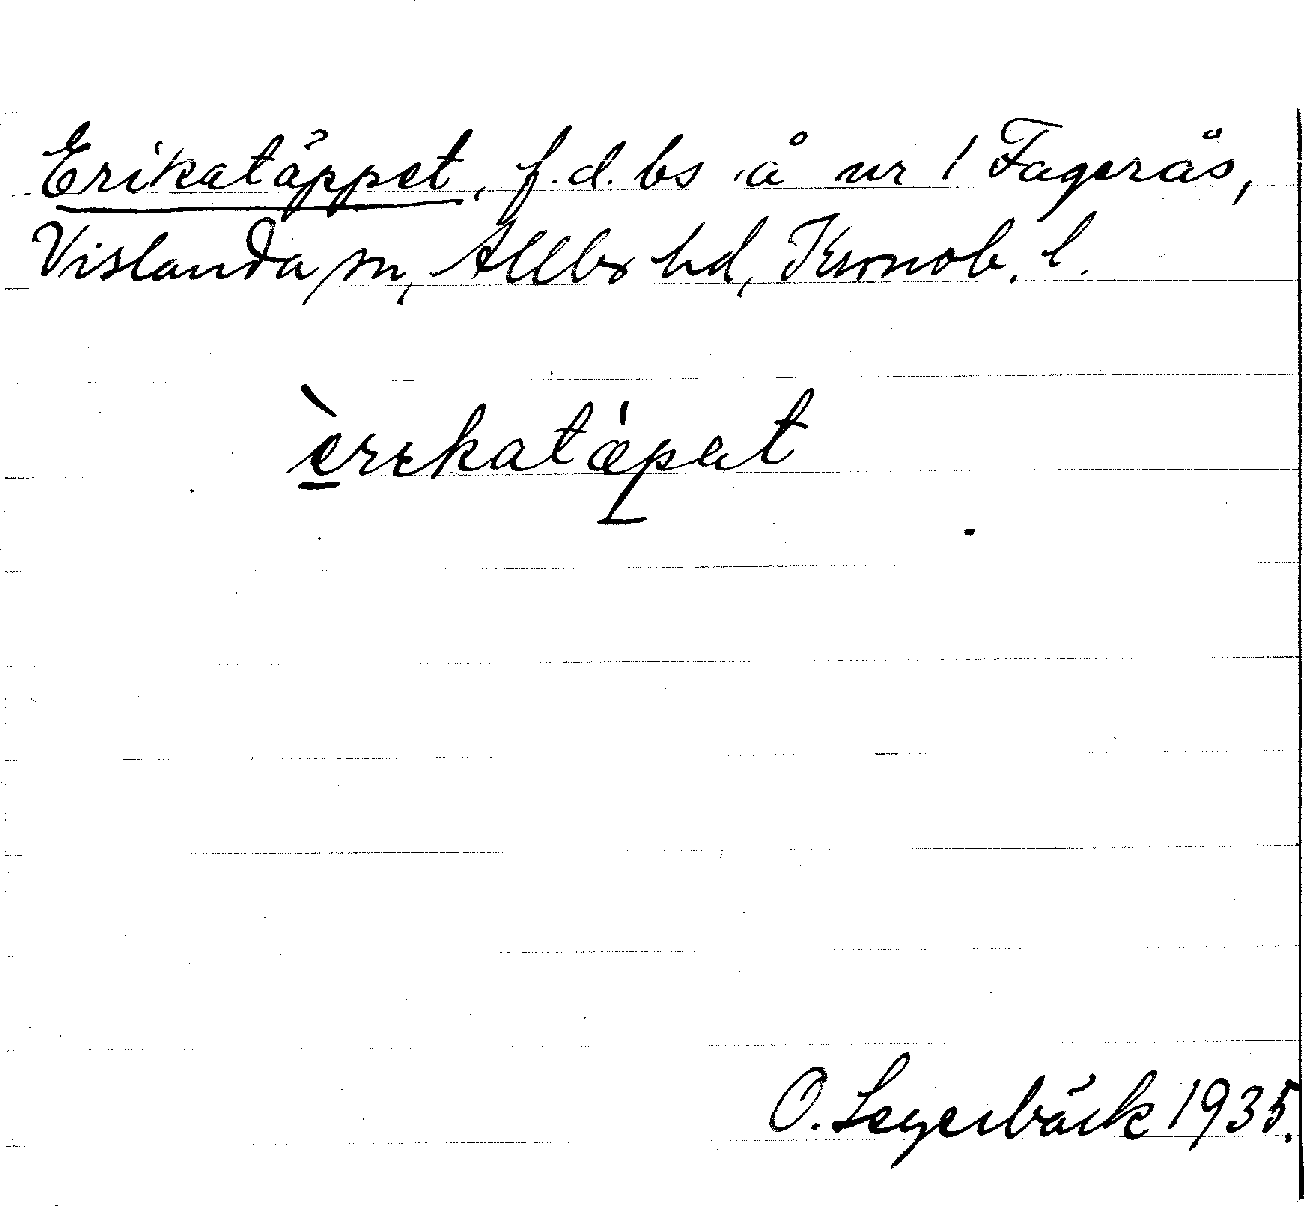 Erikatäppet, f.d. bs å nr 1 Fagerås,
Vislanda sn, Allbo hd, Kronob. l.
èrɩkatæ̀pət
O. Legerbäck 1935.